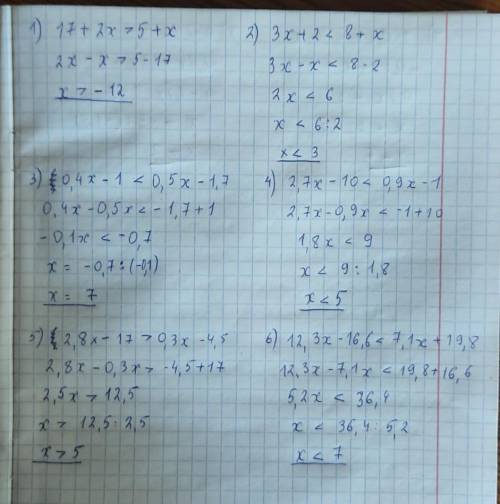 1) 17 + 2x > 5 + x
2x - x > 5 - 17
x > -12
2) 3x + 2 < 8 + x
3x - x < 8 - 2
2x < 6
x < 6 : 2
x < 3
3) 0,4x - 1 < 0,5x - 1,7
0,4x - 0,5x < -1,7 + 1
-0,1x < -0,7
x = -0,7 : (-0,1)
x = 7
4) 2,7x - 10 < 0,9x - 1
2,7x - 0,9x < -1 + 10
1,8x < 9
x < 9 : 1,8
x < 5
5) 2,8x - 17 > 0,3x - 4,5
2,8x - 0,3x > -4,5 + 17
2,5x > 12,5
x > 12,5 : 2,5
x > 5
6) 12,3x - 16,6 < 7,1x + 19,8
12,3x - 7,1x < 19,8 + 16,6
5,2x < 36,4
x < 36,4 : 5,2
x < 7